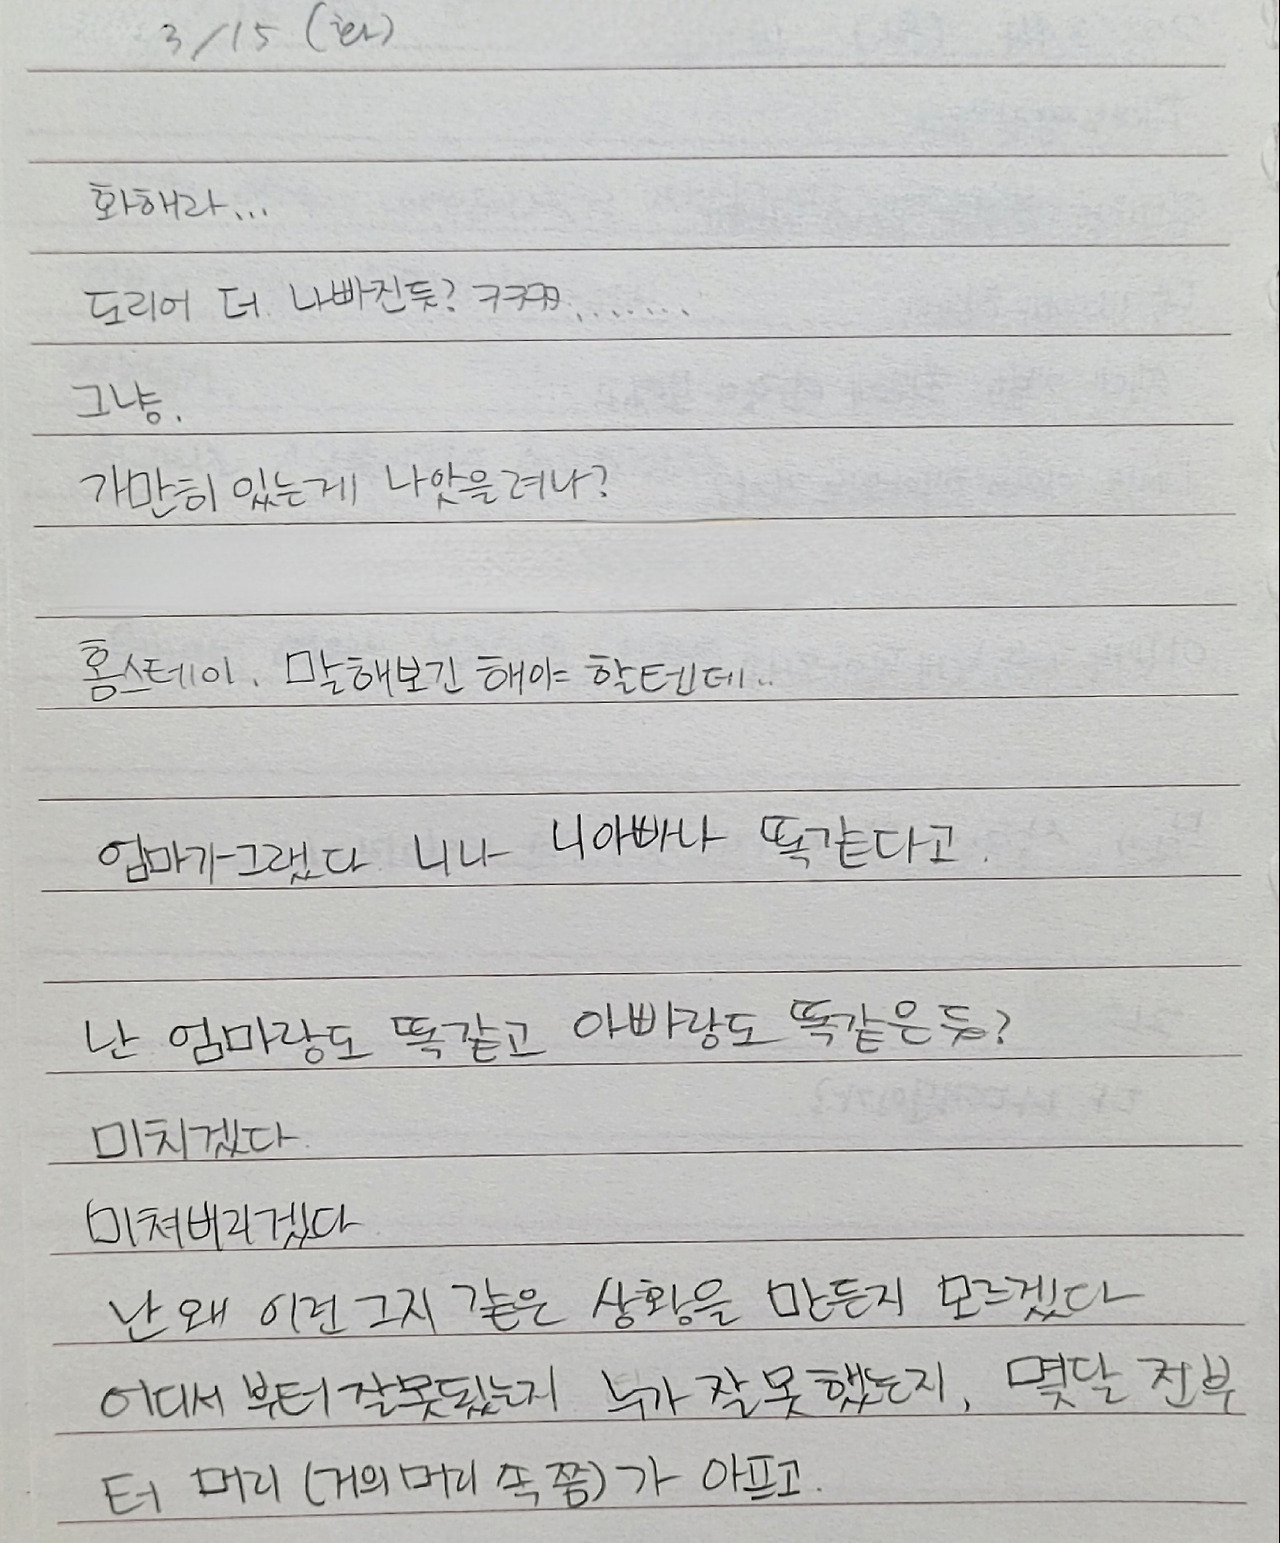 3/15 (화)
화해라...
도리어 더 나빠진듯? ㅋㅋㅋㅋ........
그냥.
가만히 있는게 나앗을려나?
홈스테이. 말해보긴 해야 할텐데..
엄마가그랬다 니나 니아빠나 똑같다고.
난 엄마랑도 똑같고 아빠랑도 똑같은듯?
미치겠다.
미쳐버리겠다
난 왜 이런 그지 같은 상황을 만든지 모르겠다
어디서 부터 잘못됬는지 누가 잘못했는지, 몇달 전부
터 머리 (거의 머리 속 쯤)가 아프고.